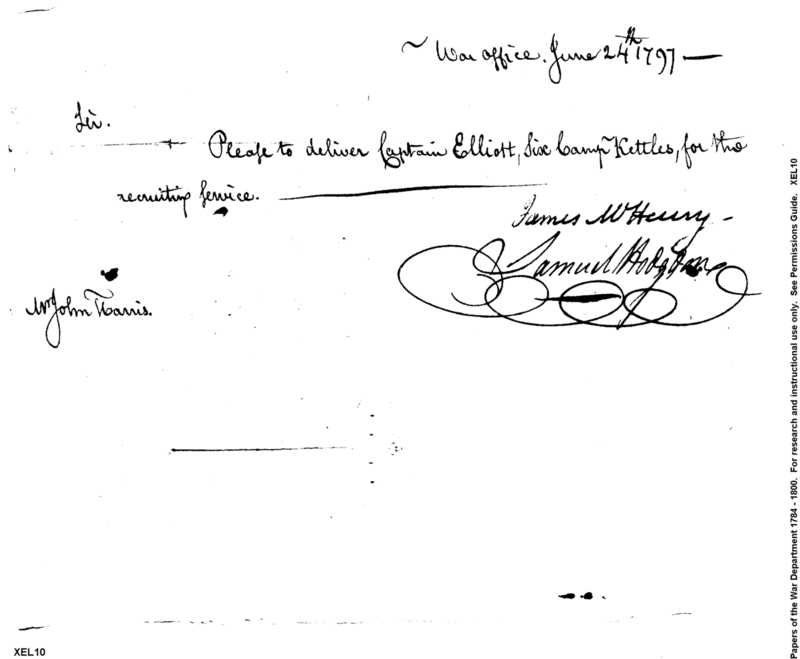 ~ War office. June 24th 1797 —
Sir.
Please to deliver Captain Elliott, Six Camp Kettles, for the
recruiting Service.
James McHenry -
Samuel Hodgdon
Mr John Harris.
XEL10
Papers of the War Department 1784 - 1800. For research and instructional use only. See Permissions Guide. XEL10